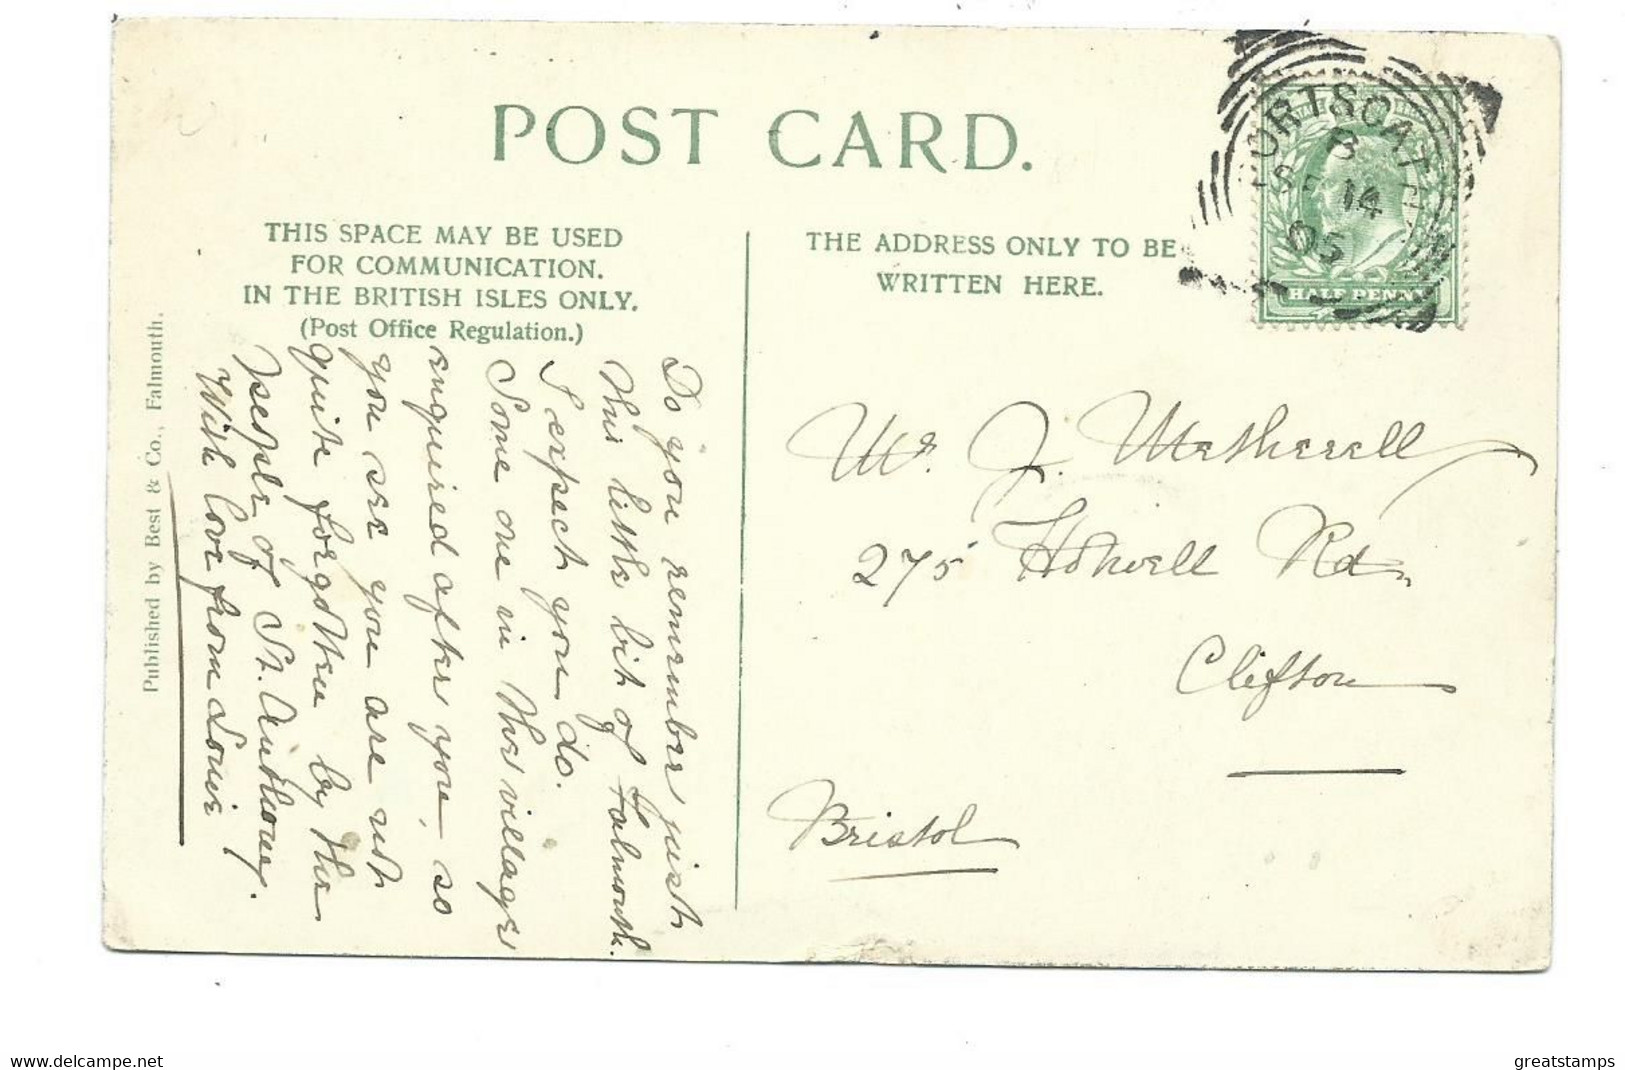 POST CARD.
THIS SPACE MAY BE USED
FOR COMMUNICATION.
IN THE BRITISH ISLES ONLY.
(Post Office Regulation.)
THE ADDRESS ONLY TO BE
WRITTEN HERE.
PORTSCATHO
B
SP 14
05
HALF PENNY
Do you remember just
this little bit of Falmouth.
I expect you do.
Some one in this village
enquired after you, so
you see you are not
quite forgotten by the
people of St. Anthony.
With love from Louie
Published by Best & Co., Falmouth.
Mr. J. Metherell
275 Hotwell Rd
Clifton
Bristol
www.delcampe.net
greatstamps